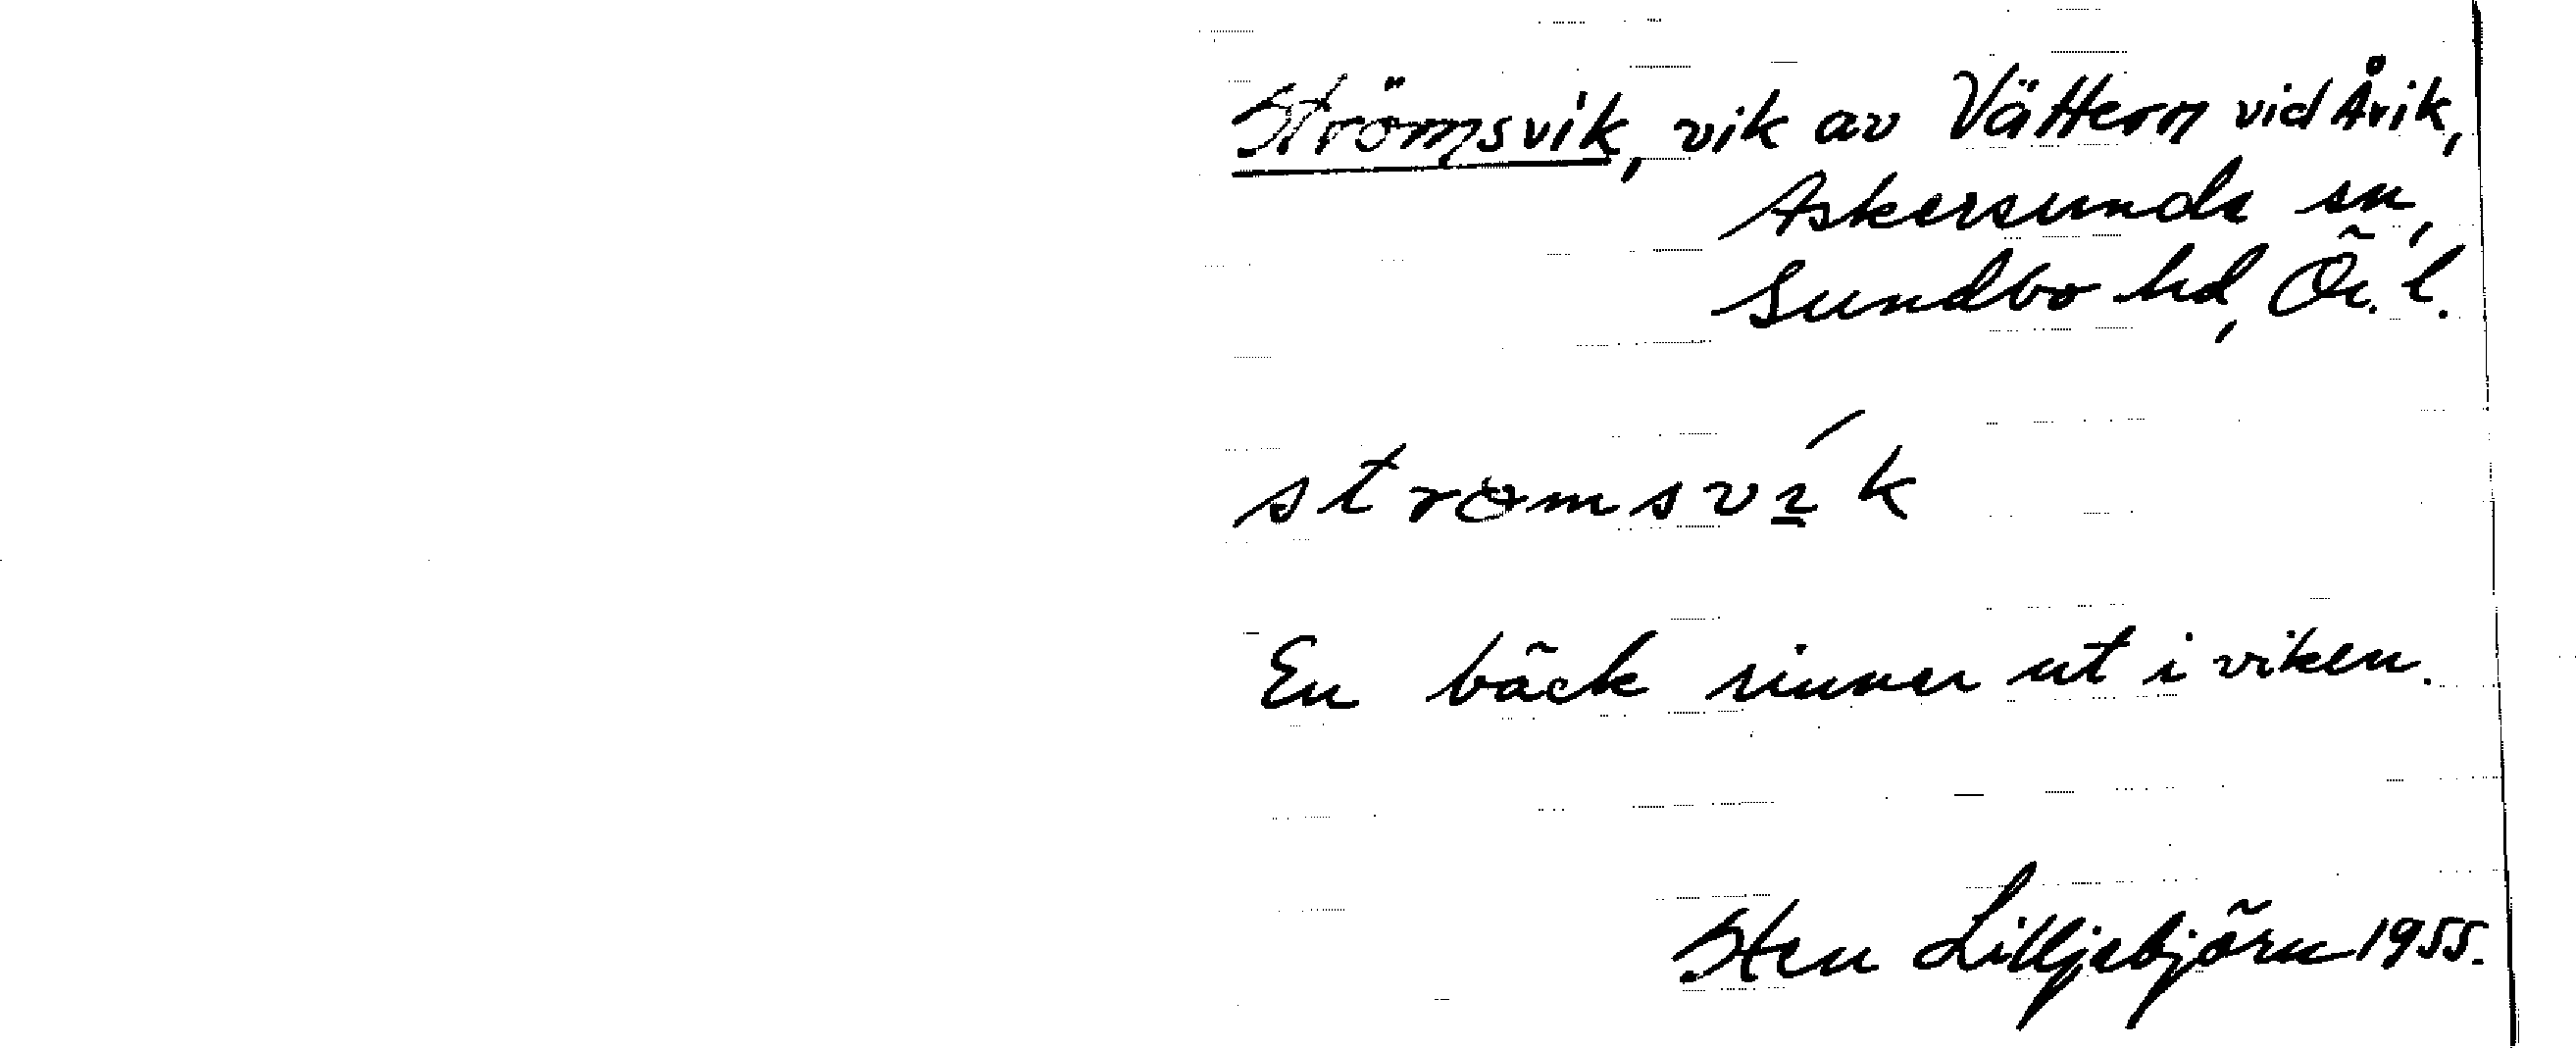 Strömsvik, vik av Vättern vid Åvik,
Askersunds sn,
Sundbo hd, Ör. l.
strömsvı́k
En bäck rinner ut i viken.
Sten Lilljebjörn 1955.